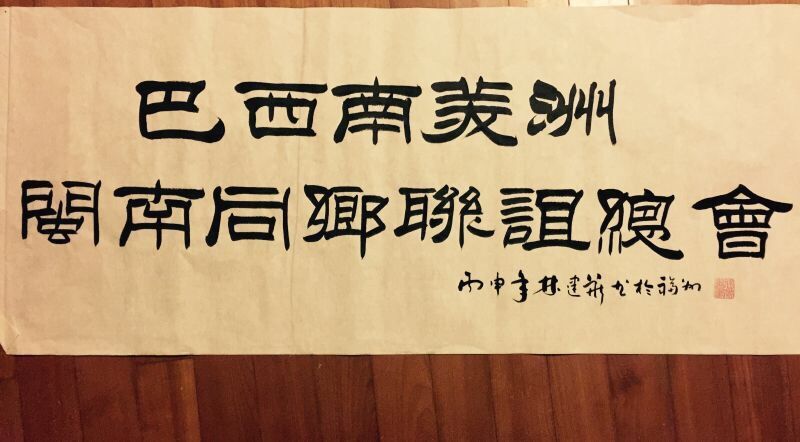 巴西南美洲
閩南同鄉聯誼總會
丙申年林建书於福州